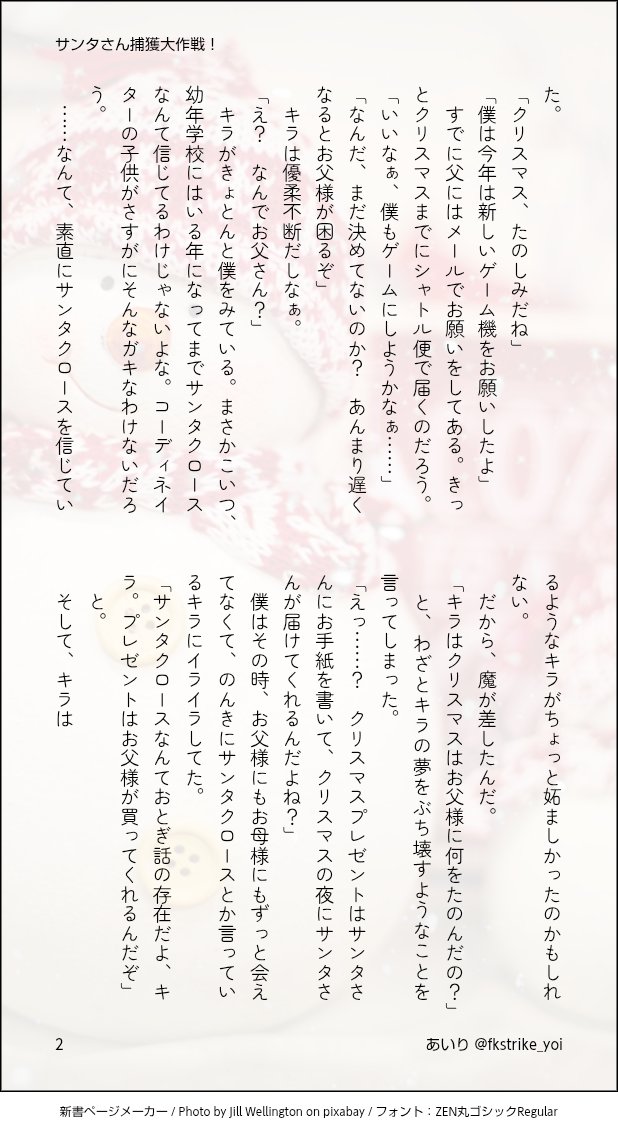 サンタさん捕獲大作戦！
た。
「クリスマス、たのしみだね」
「僕は今年は新しいゲーム機をお願いしたよ」
すでに父にはメールでお願いをしてある。きっ
とクリスマスまでにシャトル便で届くのだろう。
「いいなぁ、僕もゲームにしようかなぁ……」
「なんだ、まだ決めてないのか？　あんまり遅く
なるとお父様が困るぞ」
キラは優柔不断だしなぁ。
「え？　なんでお父さん？」
キラがきょとんと僕をみている。まさかこいつ、
幼年学校にはいる年になってまでサンタクロース
なんて信じてるわけじゃないよな。コーディネイ
ターの子供がさすがにそんなガキなわけないだろ
う。
……なんて、素直にサンタクロースを信じてい
るようなキラがちょっと妬ましかったのかもしれ
ない。
だから、魔が差したんだ。
「キラはクリスマスはお父様に何をたのんだの？」
と、わざとキラの夢をぶち壊すようなことを
言ってしまった。
「えっ……？　クリスマスプレゼントはサンタさ
んにお手紙を書いて、クリスマスの夜にサンタさ
んが届けてくれるんだよね？」
僕はその時、お父様にもお母様にもずっと会え
てなくて、のんきにサンタクロースとか言ってい
るキラにイライラしてた。
「サンタクロースなんておとぎ話の存在だよ、キ
ラ。プレゼントはお父様が買ってくれるんだぞ」
と。
そして、キラは
2
あいり @fkstrike_yoi
新書ページメーカー / Photo by Jill Wellington on pixabay / フォント：ZEN丸ゴシックRegular